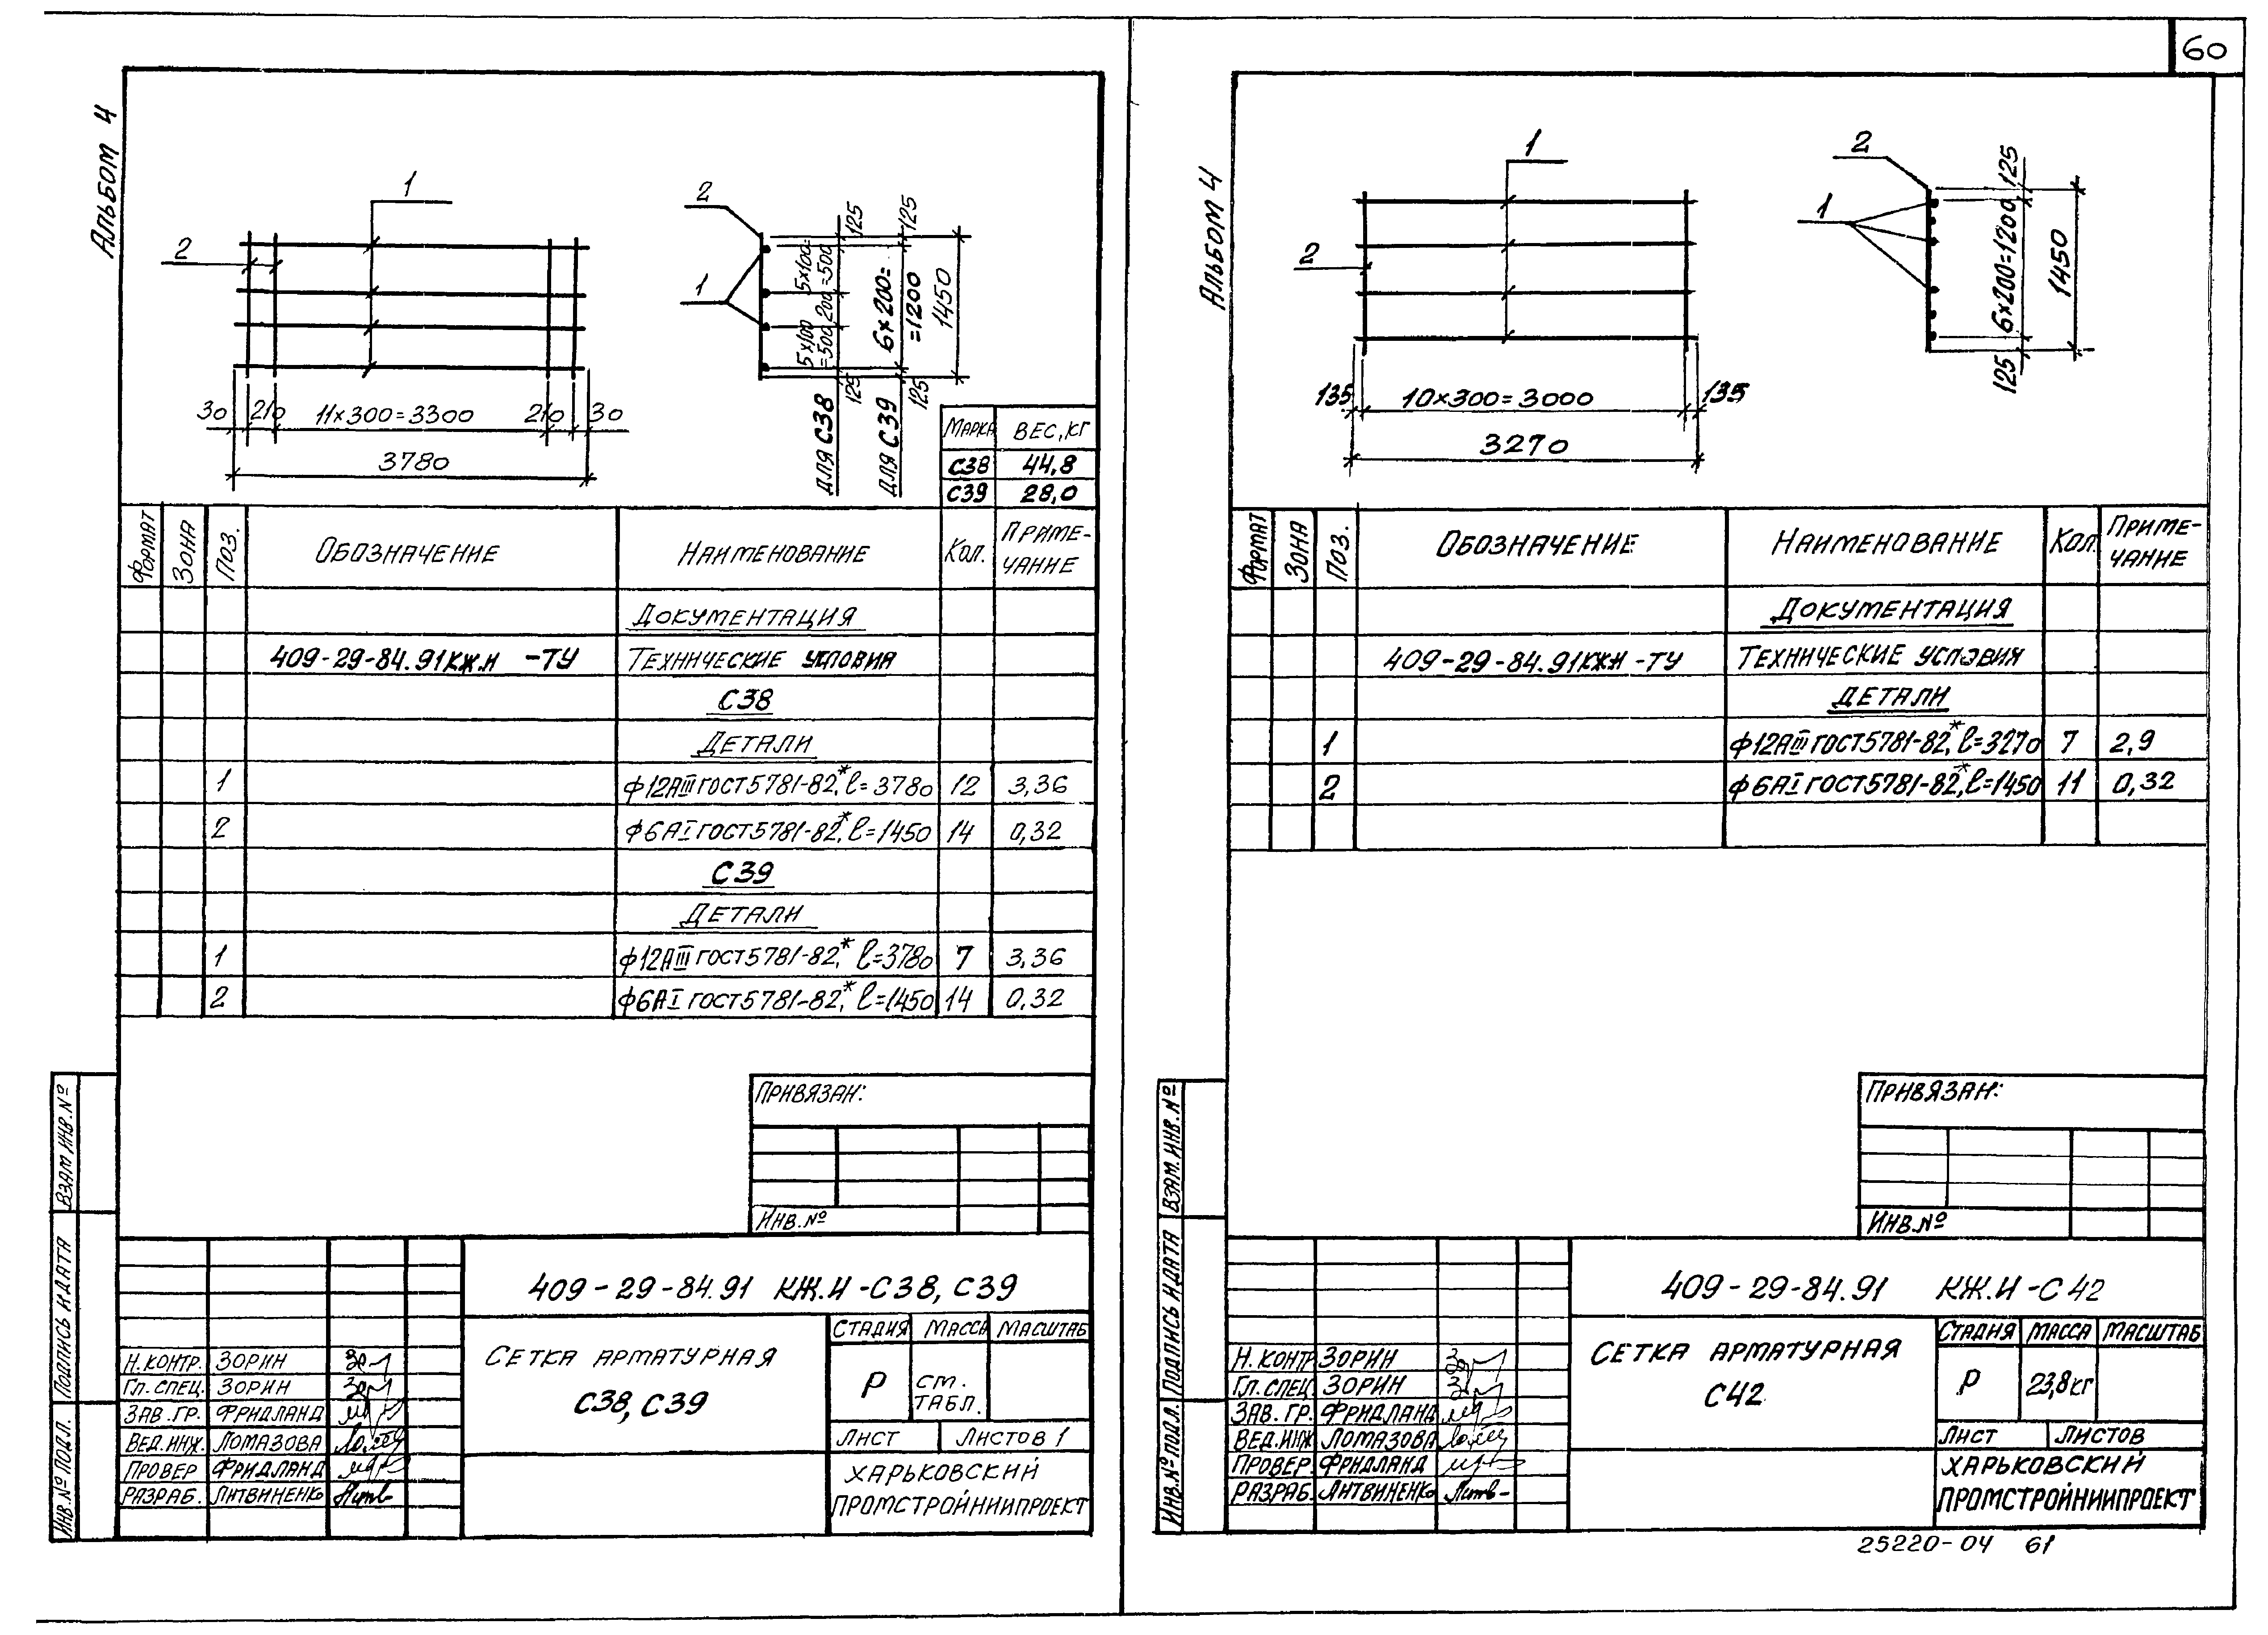 60
Альбом 4
1
2
2
1
30 210 11×300=3300 210 30
3780
125
5×100=
=500
200
5×100
=500
125
для С38
125
6×200=
=1200
125
для С39
1450
Марка Вес, кг
С38 44,8
С39 28,0
Формат Зона Поз. Обозначение Наименование Кол. Приме-
чание
Документация
409-29-84.91 КЖ.И -ТУ Технические условия
С38
Детали
1 ф12АIII ГОСТ 5781-82*, l=3780 12 3,36
2 ф6АI ГОСТ 5781-82*, l=1450 14 0,32
С39
Детали
1 ф12АIII ГОСТ 5781-82*, l=3780 7 3,36
2 ф6АI ГОСТ 5781-82*, l=1450 14 0,32
Привязан:
Инв.№
Взам.инв.№
Подпись и дата
Инв.№ подл.
409-29-84.91 КЖ.И -С38, С39
Н.контр. Зорин
Гл.спец. Зорин
Зав.гр. Фридланд
Вед.инж. Ломазова
Провер Фридланд
Разраб. Литвиненко
Сетка арматурная
С38, С39
Стадия Масса Масштаб
Р см.
табл.
Лист Листов 1
Харьковский
Промстройниипроект
Альбом 4
1
2
2
1
135 10×300=3000 135
3270
125
6×200=1200
125
1450
Формат Зона Поз. Обозначение Наименование Кол. Приме-
чание
Документация
409-29-84.91КЖИ -ТУ Технические условия
Детали
1 ф12АIII ГОСТ 5781-82*, l=3270 7 2,9
2 ф6АI ГОСТ 5781-82*, l=1450 11 0,32
Привязан:
Инв.№
Взам.инв.№
Подпись и дата
Инв.№ подл.
409-29-84.91 КЖ.И -С42
Н.контр Зорин
Гл.спец Зорин
Зав.гр. Фридланд
Вед.инж Ломазова
Провер. Фридланд
Разраб. Литвиненко
Сетка арматурная
С42
Стадия Масса Масштаб
Р 23,8кг
Лист Листов
Харьковский
Промстройниипроект
25220-04 61